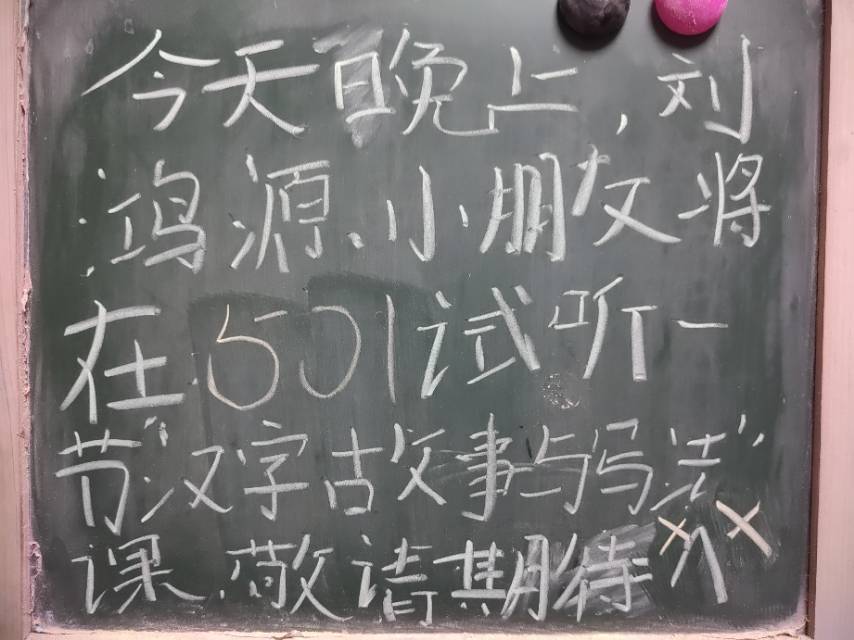 今天晚上,刘
鸿源小朋友将
在501试听一
节“汉字古故事与写法”
课,敬请期待